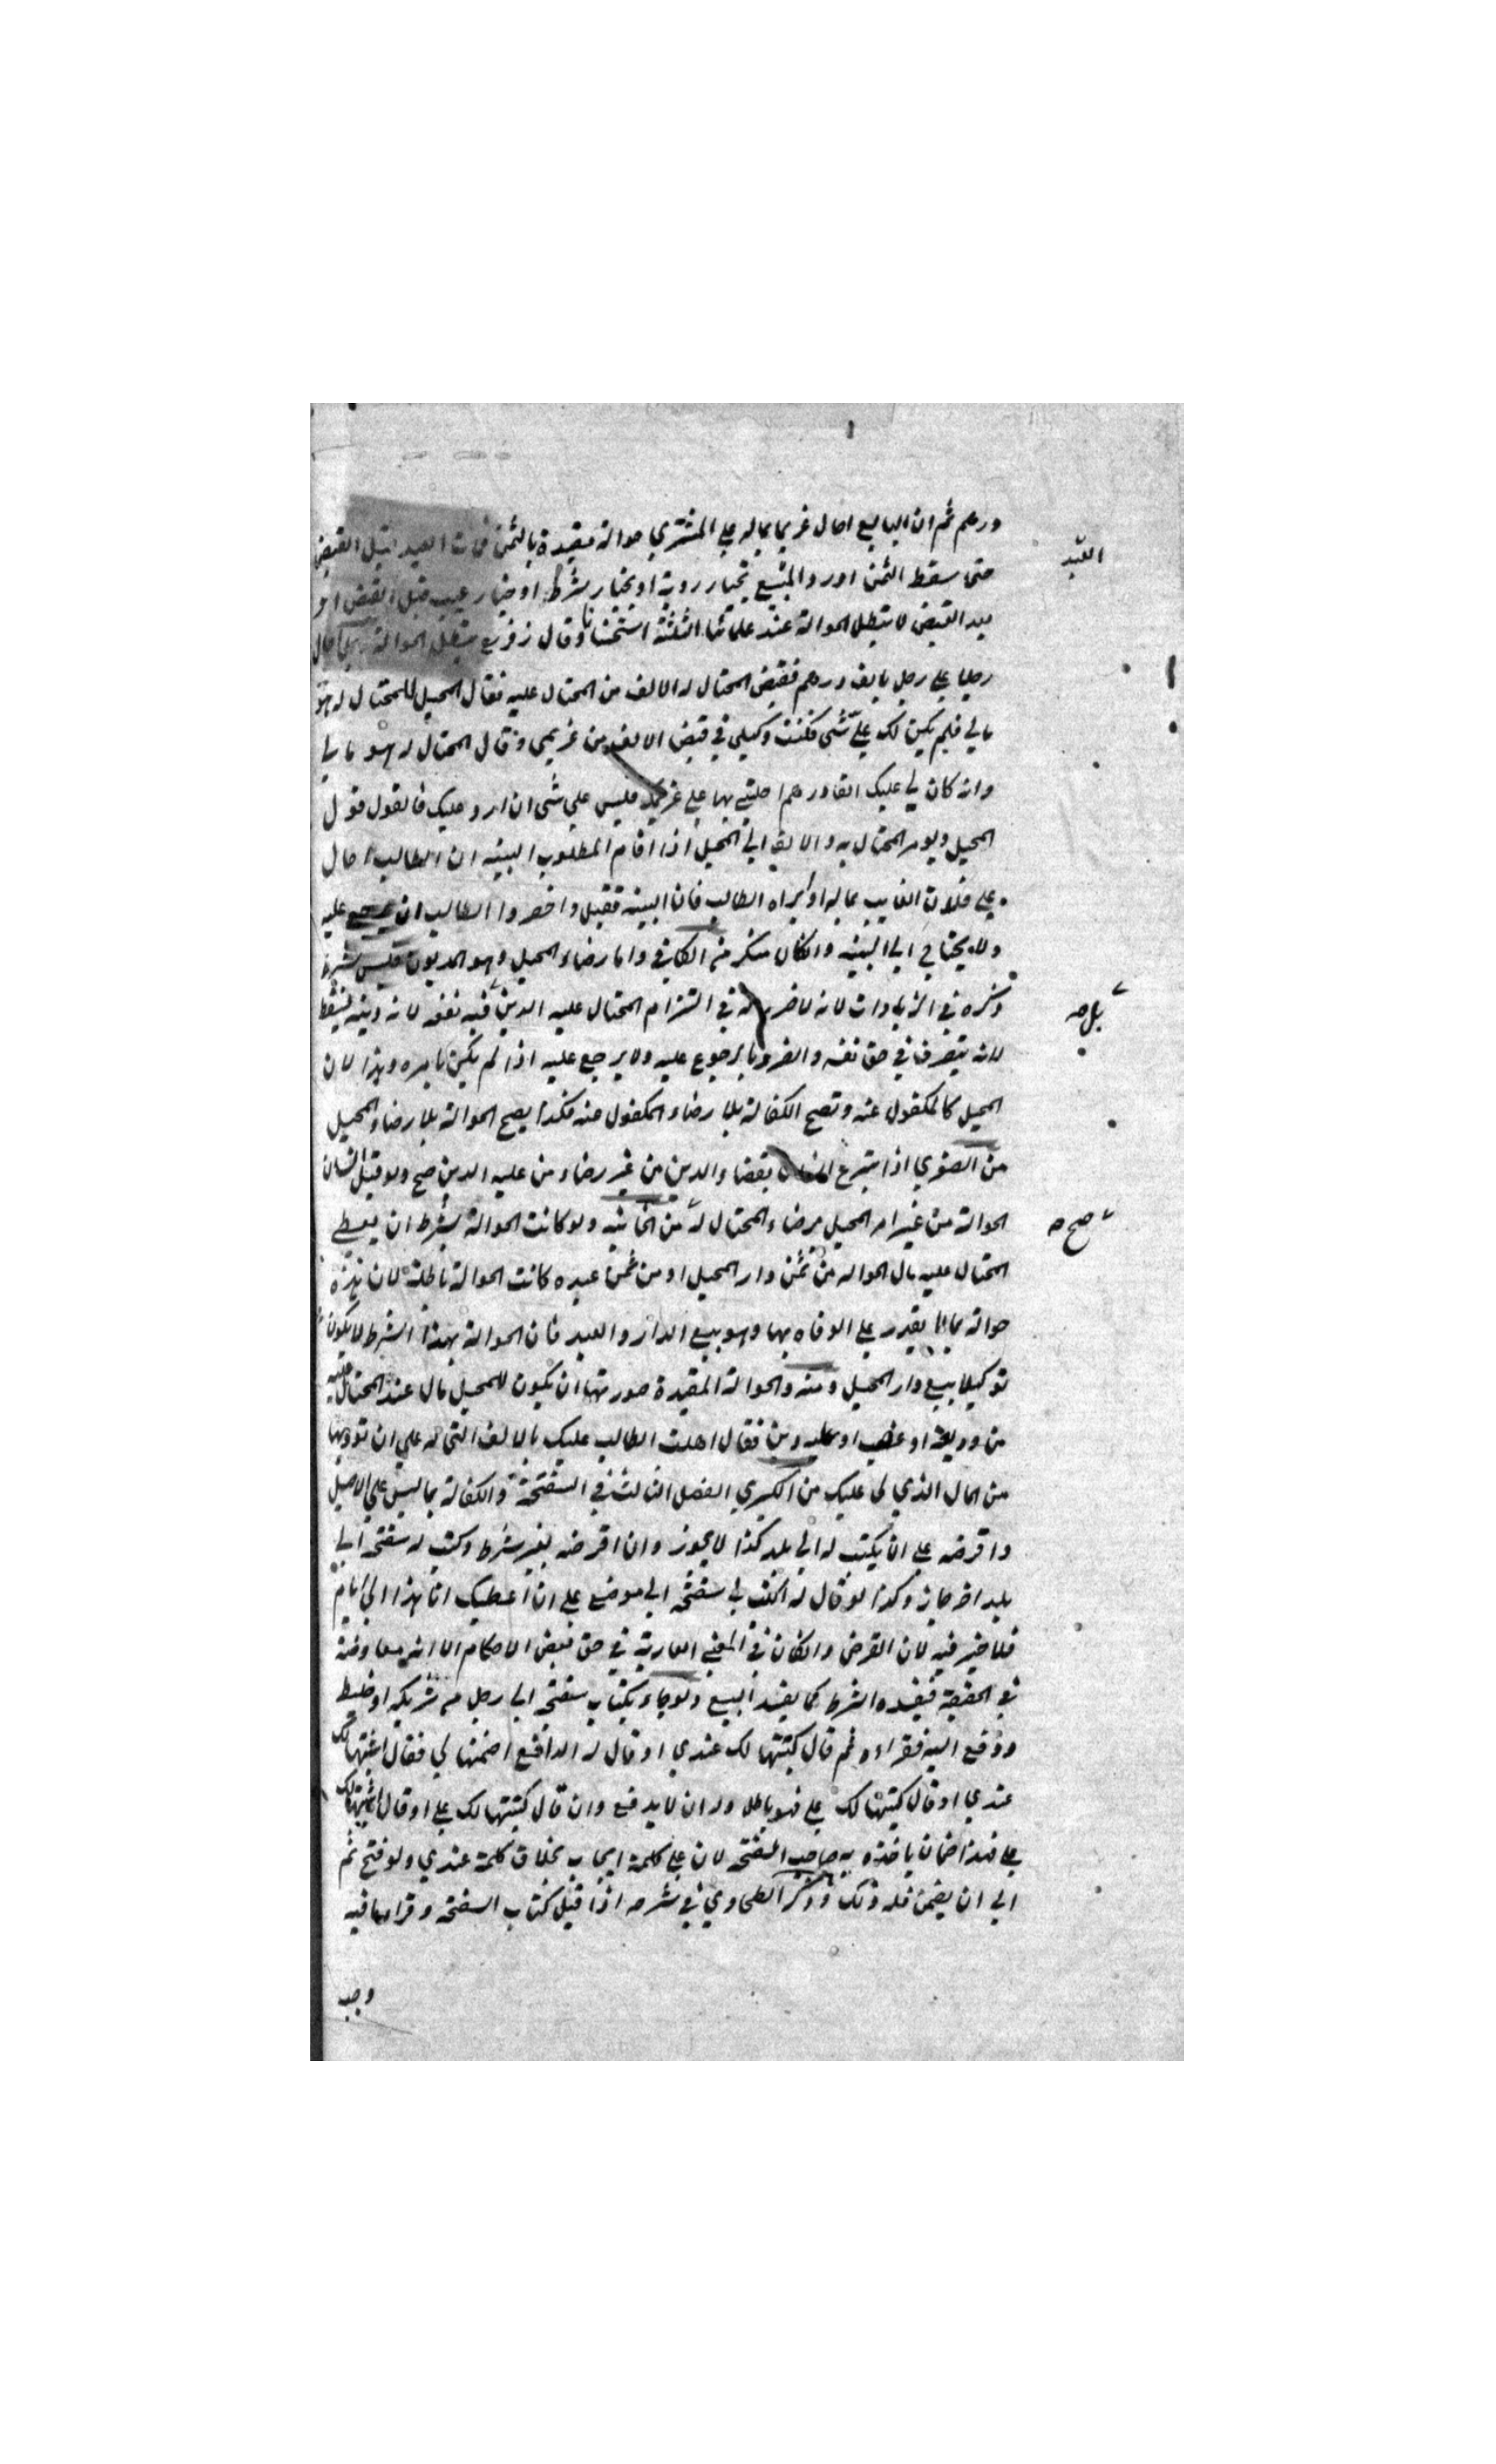 درهم ثم ان البايع احال غريما بماله علي المشتري حوالة مقيدة بالثمن فمات العبد قبل القبض
العبد
حتى سقط الثمن او رد المبيع بخيار روية او بخيار شرط او خيار عيب قبل القبض او
بعد القبض لا تبطل الحوالة عند علمائنا الثلثة استحسانا وقال زفر تبطل الحوالة رجل احال
رجلا علي رجل بالف درهم فقبض المحتال له الالف من المحتال عليه فقال المحيل للمحتال له هو
مالي فلم يكن لك عليّ شي فكنت وكيلي في قبض الالف من غريمي وقال المحتال له هو مالي
وانه كان لي عليك الفا درهم احلتني بها علي غريمك فليس علي شي ان ارد عليك فالقول قول
المحيل ويومر المحتال برد الالف الي المحيل اذا اقام المطلوب البينه ان الطالب احال
علي فلان الغايب بماله او ابراه الطالب فان البينه تقبل واحضروا الطالب ان يرجع عليه
ولا يحتاج الي البينه وانكان منكر من الكافي واما رضاء المحيل وهو المديون فليس بشرط
ذكره في الزيادات لانه لا ضرر له في التزام المحتال عليه الدين فيه نفعه لانه دينه يسقط
بل صح
لانه يتصرف في حق نفسه والضرر بالرجوع عليه ولا يرجع عليه اذا لم يكن بامره وهذا لان
المحيل كالمكفول عنه وتصح الكفالة بلا رضاء المكفول عنه فكذا يصح الحوالة بلا رضاء المحيل
من الصغري اذا تبرع انسان بقضاء الدين من غير رضاء من عليه الدين صح ولو قبل انسان
الحوالة من غير امر المحيل برضاء المحتال له من الخانيه ولو كانت الحوالة بشرط ان يعطي
صح صح
المحتال عليه مال الحواله من ثمن دار المحيل او من ثمن عبده كانت الحوالة باطلة لان هذه
حوالة بما لا يقدر علي الوفاء بها وهو بيع الدار والعبد فان الحوالة بهذا الشرط لا يكون
توكيلا ببيع دار المحيل ومنه والحوالة المقيدة صورتها ان يكون للمحيل مال عند المحتال عليه
من وديعة او غصب او عليه دين فقال احلت الطالب عليك بالالف التي له علي ان توديها
من المال الذي لي عليك من الكبري الفصل الثالث في السفتجة والكفالة بما ليس علي الاصيل
واقرضه علي ان يكتب له الي بلد كذا لا يجوز وان اقرضه بغير شرط وكتب له سفتجه الي
بلد اخر جاز وكذا لو قال له اكتب لي سفتجه الي موضع علي ان اعطيك انا هذا الي ايام
فلا خير فيه لان القرض وانكان في المعني العارية في حق بعض الاحكام الا انه معاوضة
في الحقيقة فيفسده الشرط كما يفسد البيع ولو جاء بكتاب سفتجه الي رجل من شريكه او خليط
ودفع اليه فقراءه ثم قال كتبتها لك عندي او قال له الدافع اضمنها لي فقال اثبتها لك
عندي او قال كتبتها لك علي فهو باطل وله ان لا يدفع وان قال كتبتها لك علي او قال اثبتها لك
علي فهذا ضمان ياخذه به صاحب السفتجه لان علي كلمة ايجاب بخلاف كلمة عندي ولو فتح ثم
ابي ان يضمن فله ذلك وذكر الطحاوي في شرحه اذا قبل كتاب السفتجه وقرا ما فيه
وجب